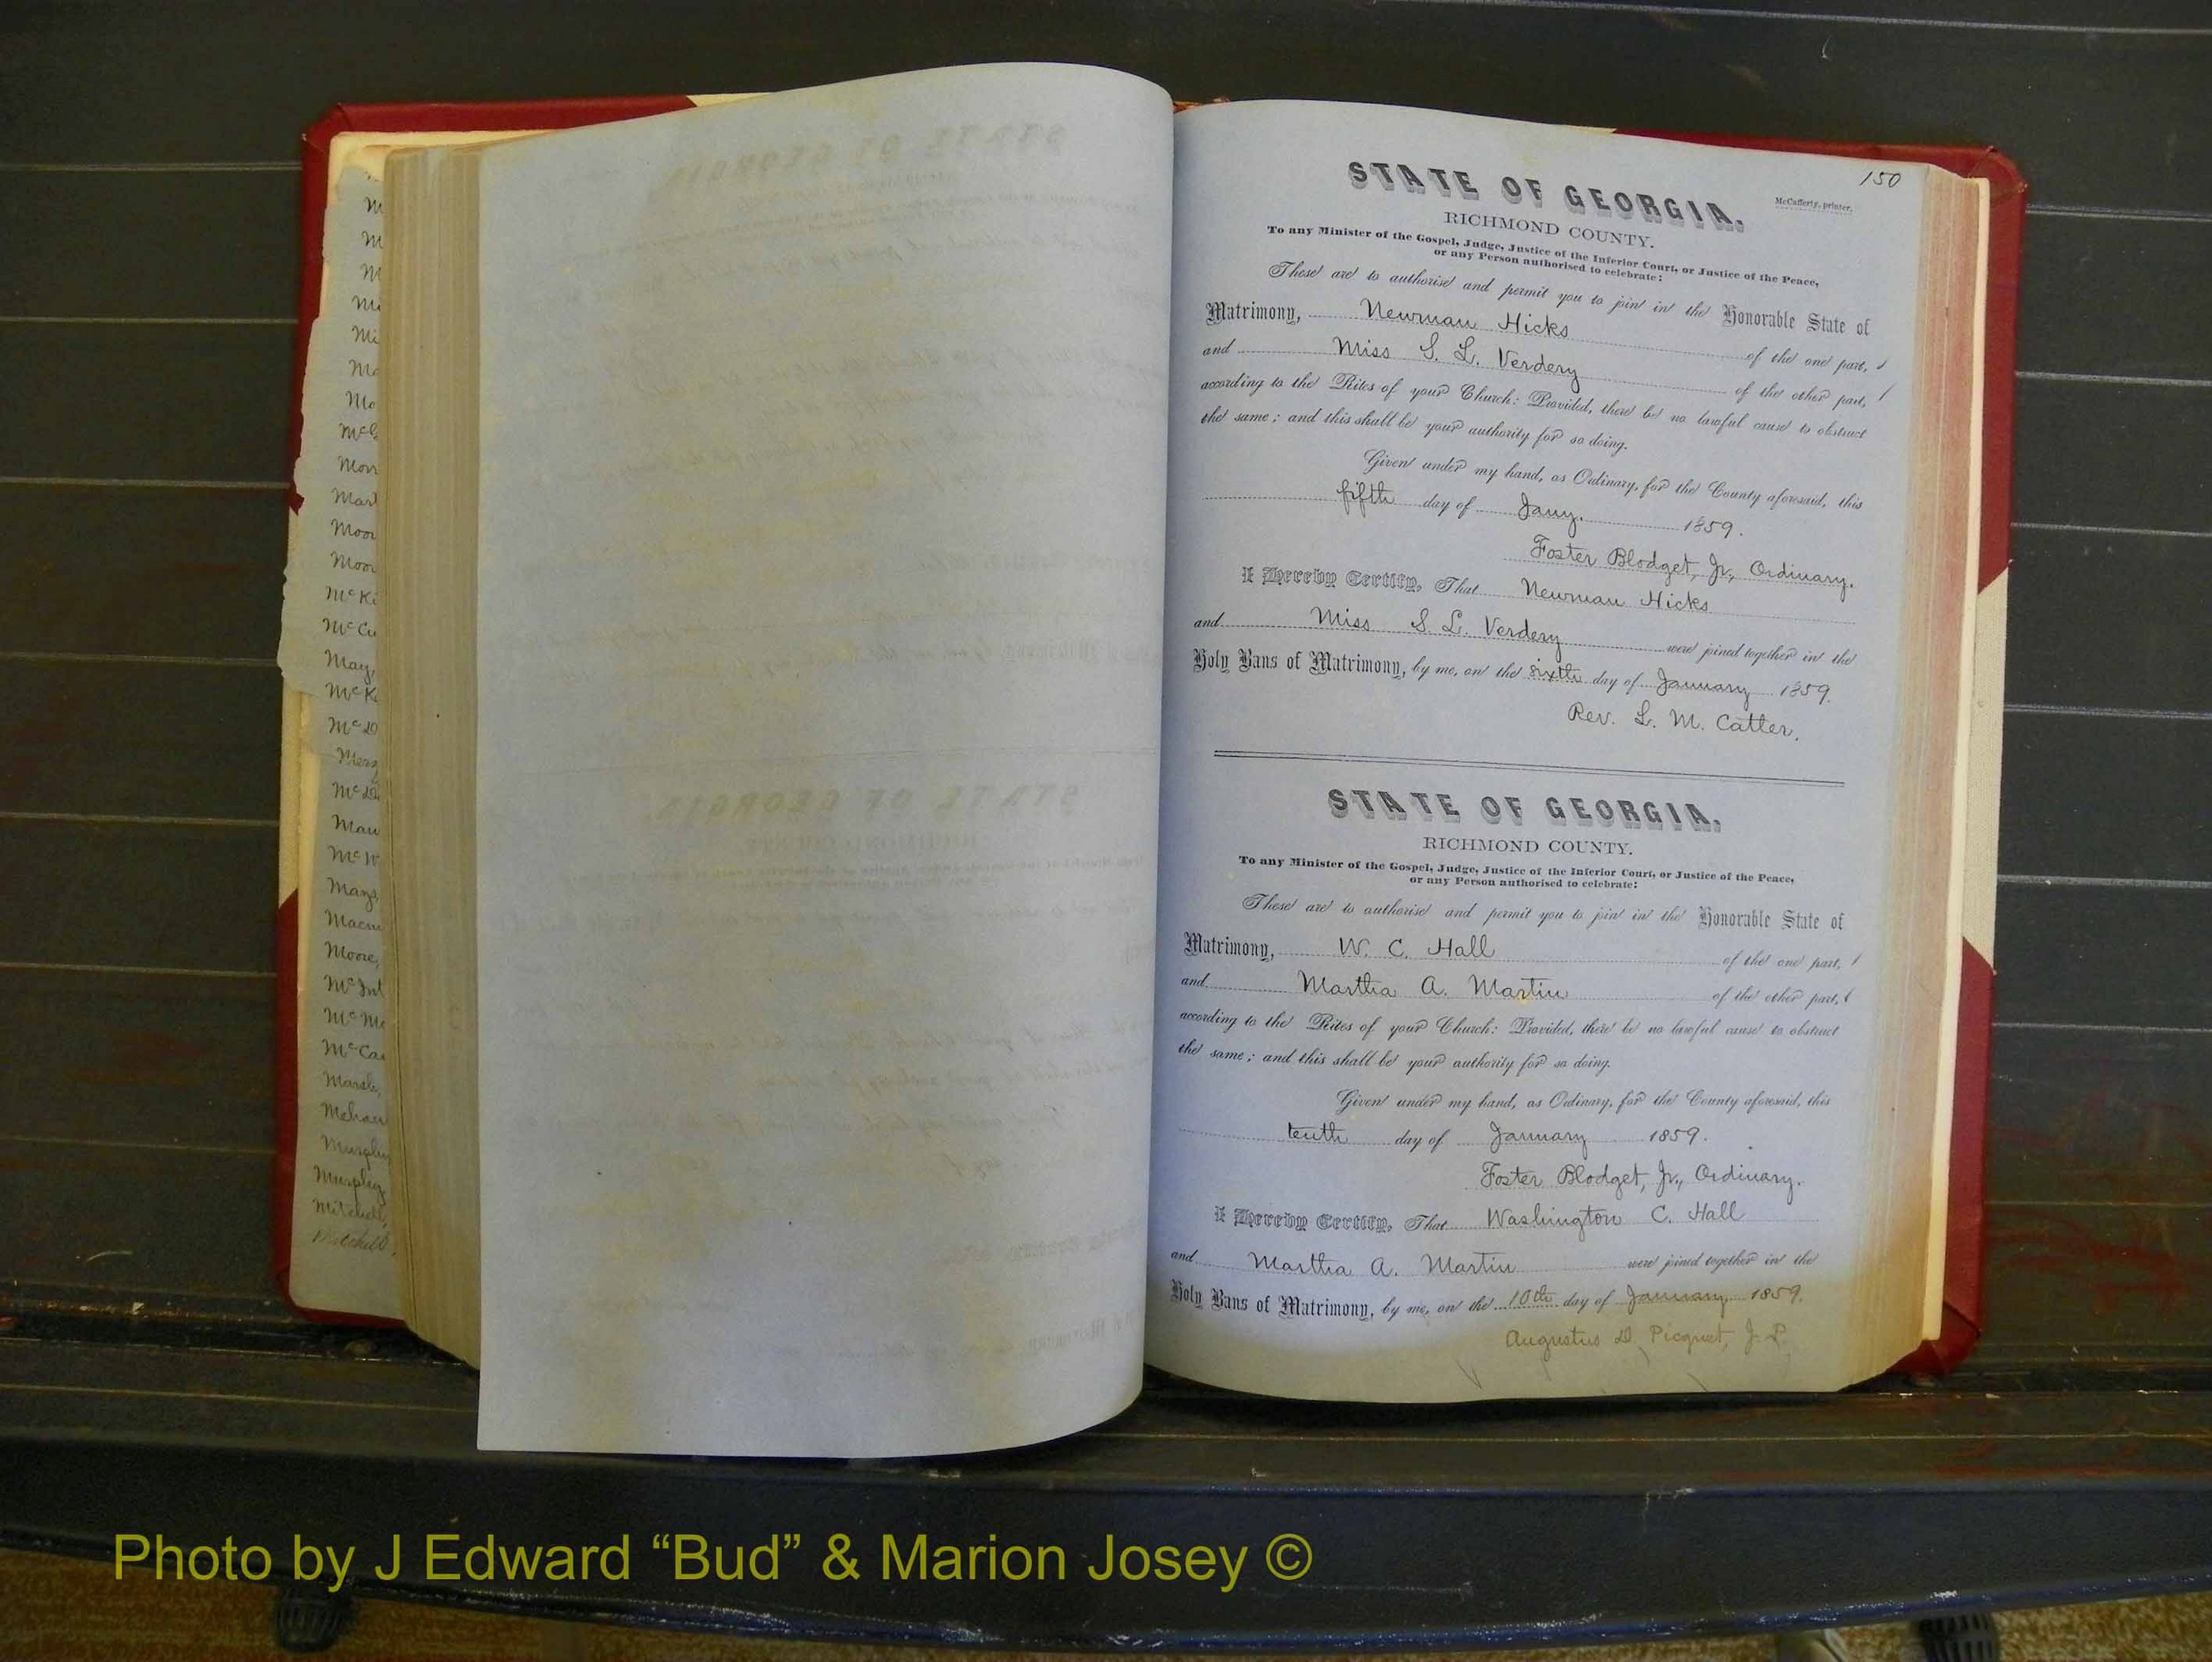 M
M
M
Mi
Mi
Mc
Mo
McG
Morr
Mart
Moor
Moor
McKi
McCu
May,
McK
McD
McDa
Mau
McW
Mays,
Macm
Moore,
McInt
McMc
McCar
Marsh,
Mehan
Murphy
Murphy
Mitchell,
Mitchell,
150
STATE OF GEORGIA.
McCafferty, printer.
RICHMOND COUNTY.
To any Minister of the Gospel, Judge, Justice of the Inferior Court, or Justice of the Peace,
or any Person authorised to celebrate:
These are to authorise and permit you to join in the Honorable State of
Matrimony, Newman Hicks of the one part,
and Miss S. L. Verdery of the other part,
according to the Rites of your Church: Provided, there be no lawful cause to obstruct
the same; and this shall be your authority for so doing.
Given under my hand, as Ordinary, for the County aforesaid, this
fifth day of Jany. 1859.
Foster Blodget, Jr., Ordinary.
I Hereby Certify, That Newman Hicks
and Miss S. L. Verdery were joined together in the
Holy Bans of Matrimony, by me, on the sixth day of January 1859.
Rev. L. M. Catter.
STATE OF GEORGIA.
RICHMOND COUNTY.
To any Minister of the Gospel, Judge, Justice of the Inferior Court, or Justice of the Peace,
or any Person authorised to celebrate:
These are to authorise and permit you to join in the Honorable State of
Matrimony, W. C. Hall of the one part,
and Martha A. Martin of the other part,
according to the Rites of your Church: Provided, there be no lawful cause to obstruct
the same; and this shall be your authority for so doing.
Given under my hand, as Ordinary, for the County aforesaid, this
tenth day of January 1859.
Foster Blodget, Jr., Ordinary.
I Hereby Certify, That Washington C. Hall
and Martha A. Martin were joined together in the
Holy Bans of Matrimony, by me, on the 10th day of January 1859.
Augustus D. Picquet, J. P.
Photo by J Edward “Bud” & Marion Josey ©